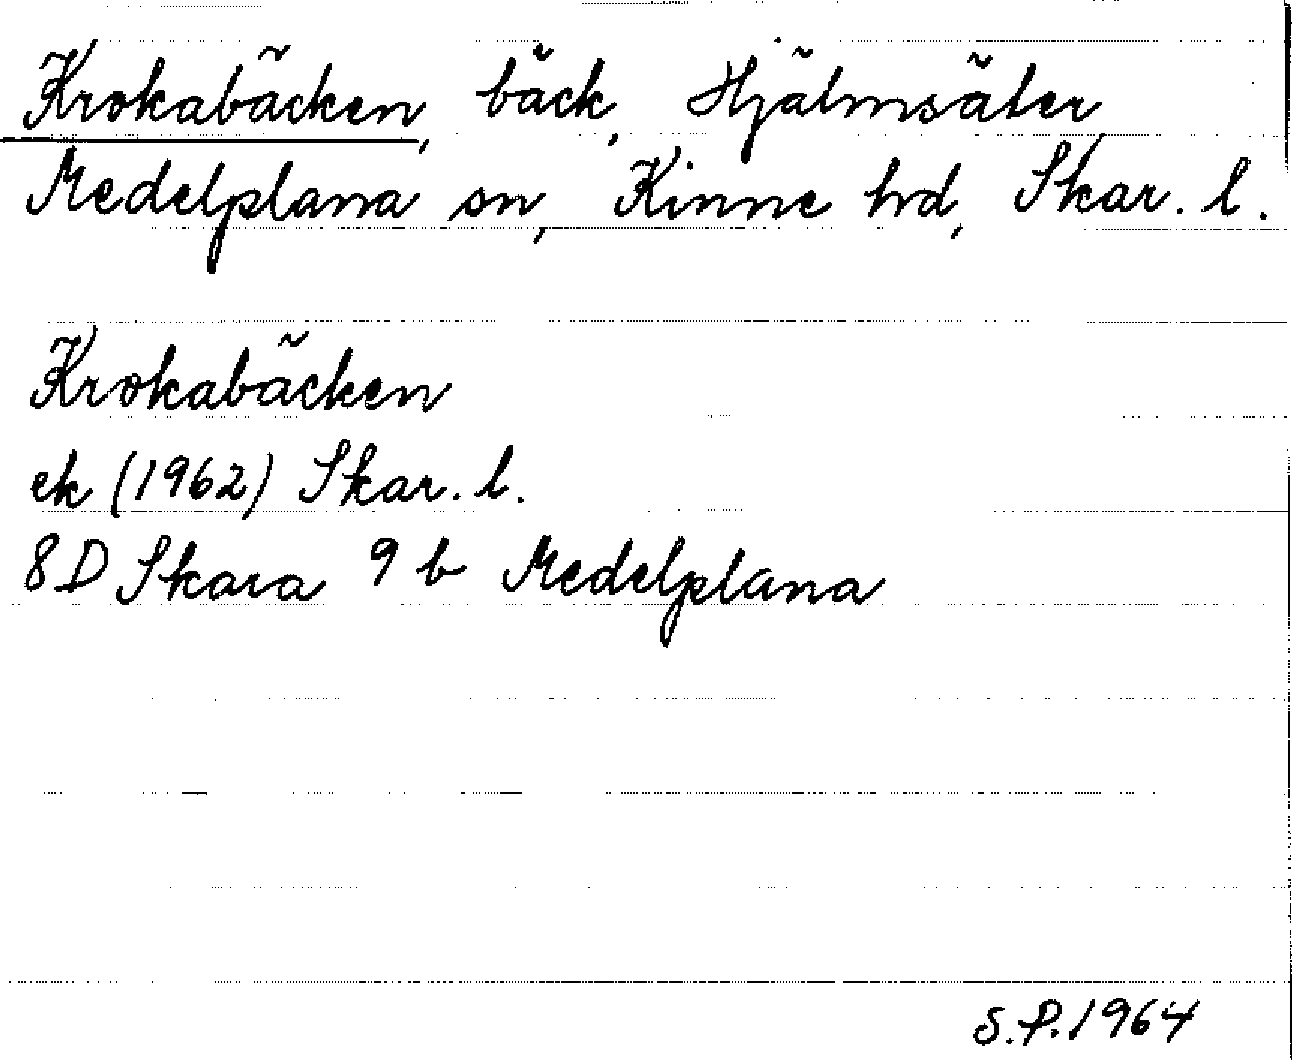 Krokabäcken, bäck, Hjälmsäter,
Medelplana sn, Kinne hd, Skar. l.
Krokabäcken
ek (1962) Skar. l.
8D Skara 9 b Medelplana
S.P. 1964